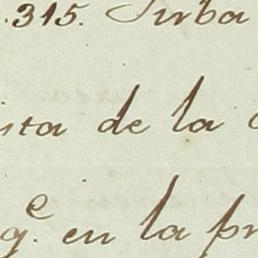 .315. Turba
ista de la
q.e en la pr